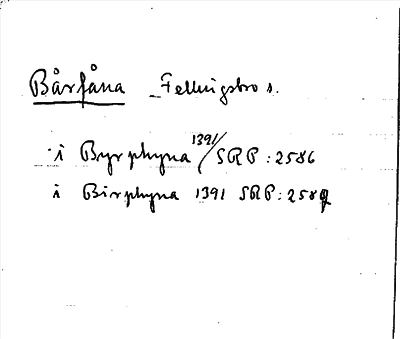 Bårfåna Fellingsbro s.
i Byrphyna 1391/ SRP: 2586
i Birphyna 1391 SRP: 2589